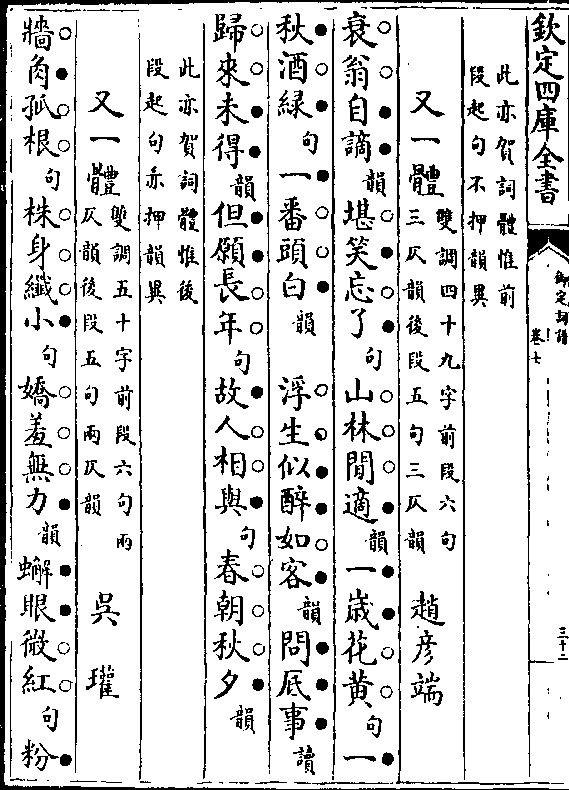 欽定四庫全書
御定詞譜
卷七
三十二
此亦賀詞體惟前
段起句不押韻異
又一體 雙調四十九字前段六句
三仄韻後段五句三仄韻 趙彥端
衰翁自謫韻堪笑忘了句山林閒適韻一歲花黃句一
秋酒綠句一番頭白韻 浮生似醉如客韻問底事讀
歸來未得韻但願長年句故人相與句春朝秋夕韻
此亦賀詞體惟後
段起句亦押韻異
又一體 雙調五十字前段六句兩
仄韻後段五句兩仄韻 吳 瓘
牆角孤根句株身纖小句嬌羞無力韻蠏眼微紅句粉